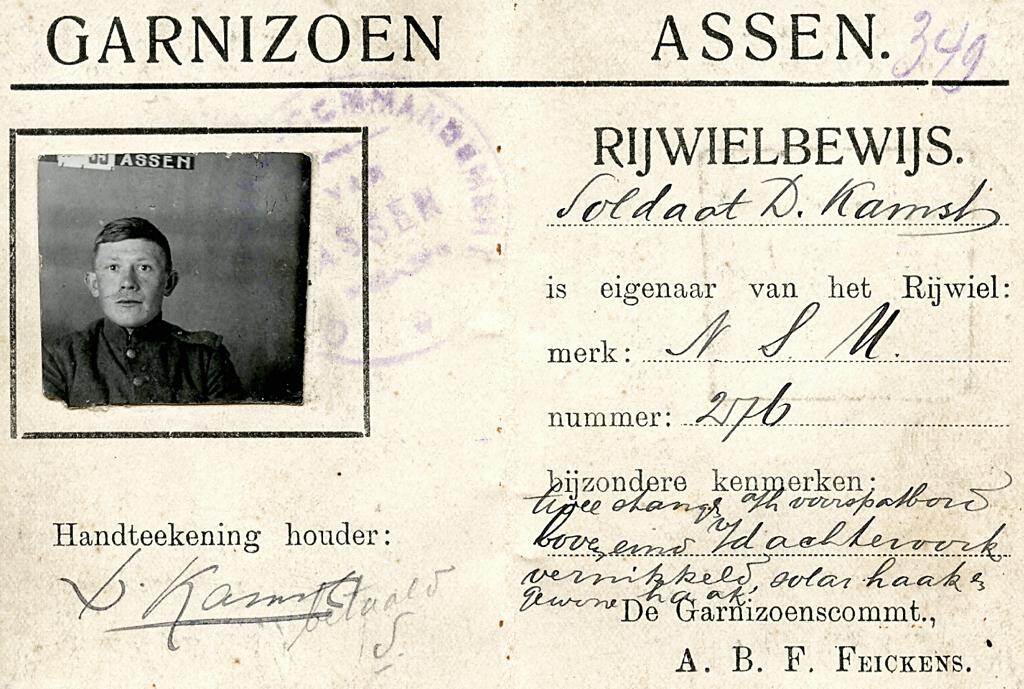 GARNIZOEN ASSEN. 349
COMMANDEMENT
VAN
ASSEN
ASSEN
RIJWIELBEWIJS.
Soldaat D. Kamst
is eigenaar van het Rijwiel:
merk: N. S. U.
nummer: 276
bijzondere kenmerken:
twee stangs voorspatbord
boveneind v/d achtervork
vernikkeld, solar haak &
gewone haak.
Handteekening houder:
D. Kamst
betaald
De Garnizoenscommt.,
A. B. F. FEICKENS.